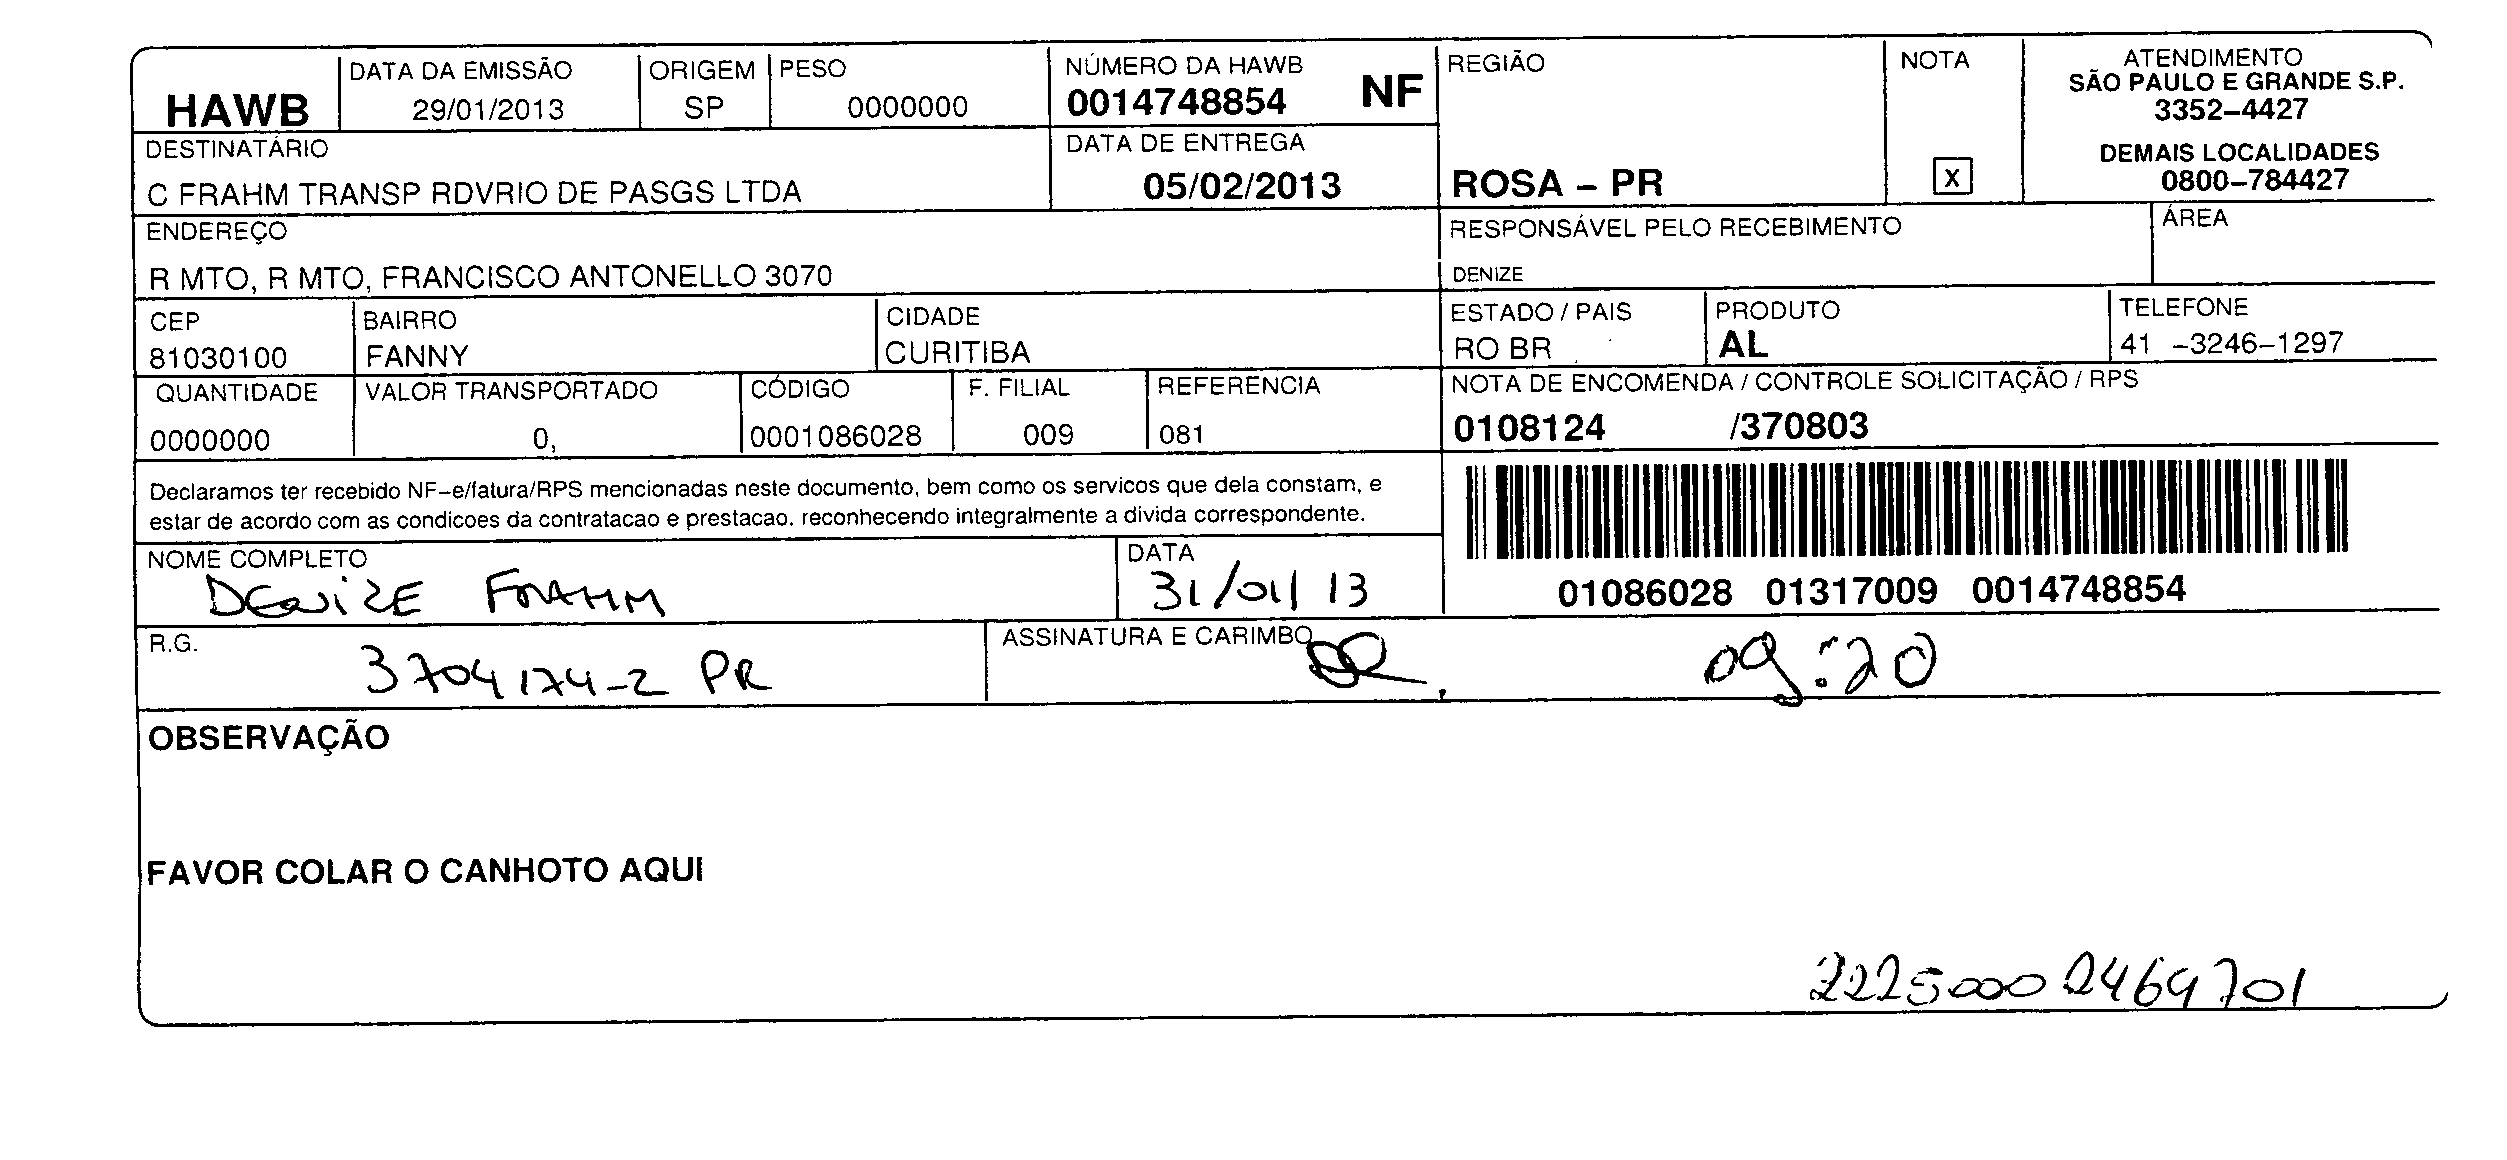 HAWB
DATA DA EMISSÃO
29/01/2013
ORIGEM
SP
PESO
0000000
NÚMERO DA HAWB
0014748854 NF
REGIÃO
ROSA – PR
NOTA
X
ATENDIMENTO
SÃO PAULO E GRANDE S.P.
3352–4427
DEMAIS LOCALIDADES
0800–784427
DESTINATÁRIO
C FRAHM TRANSP RDVRIO DE PASGS LTDA
DATA DE ENTREGA
05/02/2013
ENDEREÇO
R MTO, R MTO, FRANCISCO ANTONELLO 3070
RESPONSÁVEL PELO RECEBIMENTO
DENIZE
ÁREA
CEP
81030100
BAIRRO
FANNY
CIDADE
CURITIBA
ESTADO / PAIS
RO BR
PRODUTO
AL
TELEFONE
41 –3246–1297
QUANTIDADE
0000000
VALOR TRANSPORTADO
0,
CÓDIGO
0001086028
F. FILIAL
009
REFERENCIA
081
NOTA DE ENCOMENDA / CONTROLE SOLICITAÇÃO / RPS
0108124 /370803
Declaramos ter recebido NF–e/fatura/RPS mencionadas neste documento, bem como os servicos que dela constam, e
estar de acordo com as condicoes da contratacao e prestacao. reconhecendo integralmente a divida correspondente.
01086028 01317009 0014748854
NOME COMPLETO
DENIZE FRAHM
DATA
31/01/13
R.G.
3704174-2 PR
ASSINATURA E CARIMBO
09:20
OBSERVAÇÃO
FAVOR COLAR O CANHOTO AQUI
22250002469701